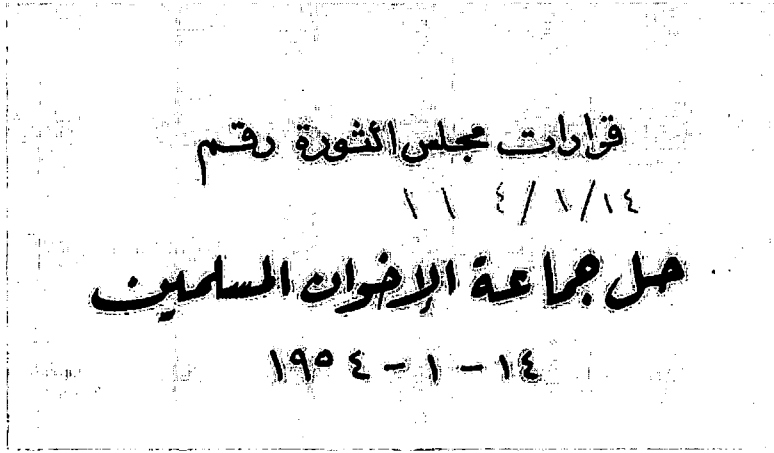 قرارات مجلس الثورة رقم
١١ ٤/١/١٤
حل جماعة الإخوان المسلمين
١٤ - ١ - ١٩٥٤